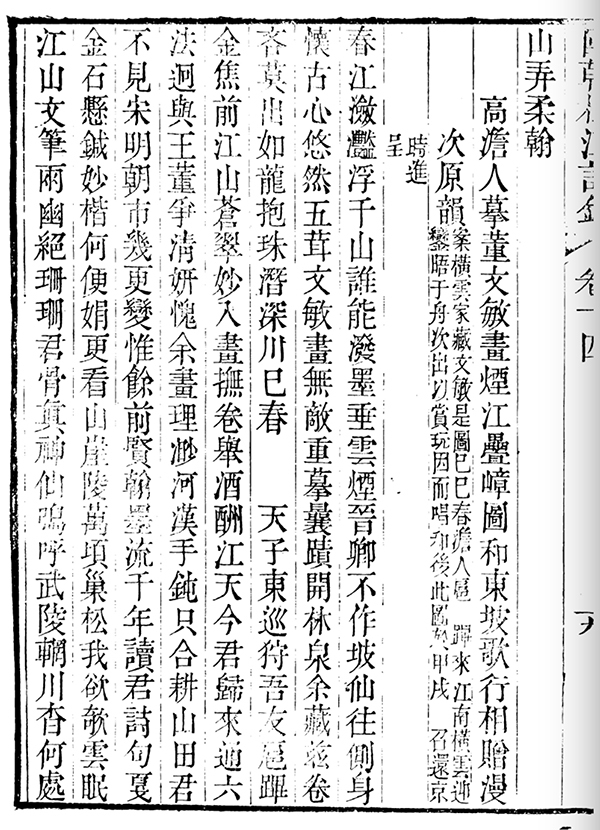 國朝松江詩鈔 卷十四
山弄柔翰
高澹人摹董文敏畫煙江疊嶂圖和東坡歌行相贈漫
次原韻案橫雲家藏文敏是圖巳巳春澹人扈 蹕來江南橫雲迎
鑾晤于舟次出以賞玩因而唱和後此圖於甲戌 召還京
時進
呈
春江瀲灩浮千山誰能潑墨垂雲煙晉卿不作坡仙往側身
懷古心悠然五茸文敏畫無敵重摹曩蹟開林泉余藏茲卷
吝莫出如龍抱珠潛深川巳春 天子東巡狩吾友扈蹕
金焦前江山蒼翠妙入畫撫卷舉酒酬江天今君歸來通六
法迥與王董爭清妍愧余畫理渺河漢手鈍只合耕山田君
不見宋明朝市幾更變惟餘前賢翰墨流千年讀君詩句戛
金石懸鍼妙楷何便娟更看山崖陵萬項巢松我欲欹雲眠
江山文筆兩幽絕珊珊君骨真神仙嗚呼武陵輞川杳何處